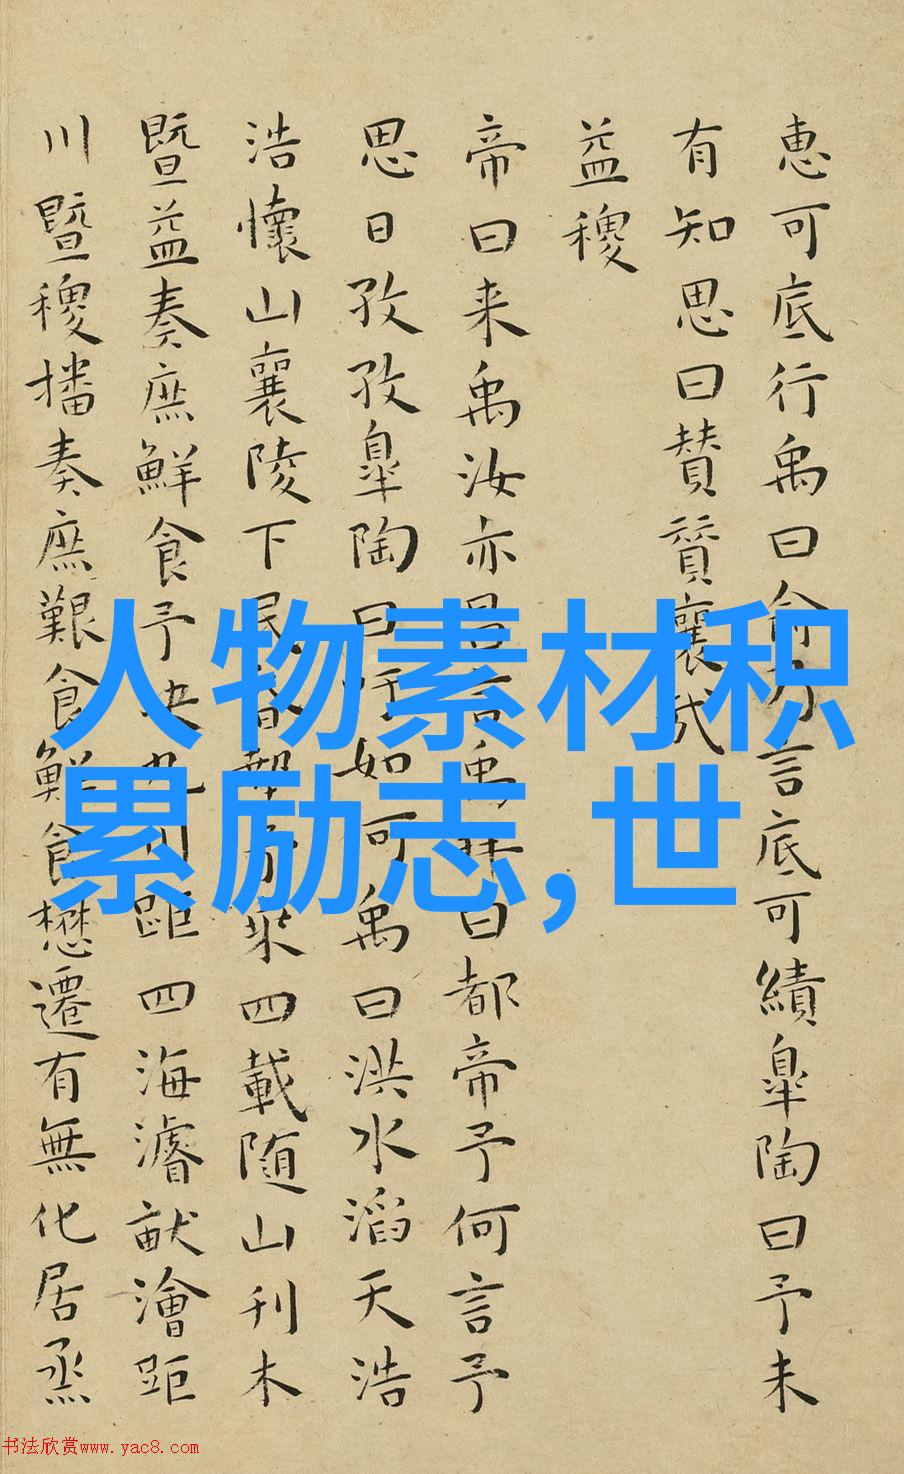 恵可底行禹曰俞乃言底可績皐陶曰予未
有知思曰賛賛襄哉
益稷
帝曰来禹汝亦昌言禹拜曰都帝予何言予
思日孜孜皐陶曰吁如何禹曰洪水滔天浩
浩懷山襄陵下民昏墊予乘四載随山刊木
暨益奏庶鮮食予決九川距四海濬畎澮距
川暨稷播奏庶艱食鮮食懋遷有無化居烝
人物素材积
累励志,世
书法欣赏www.yac8.com